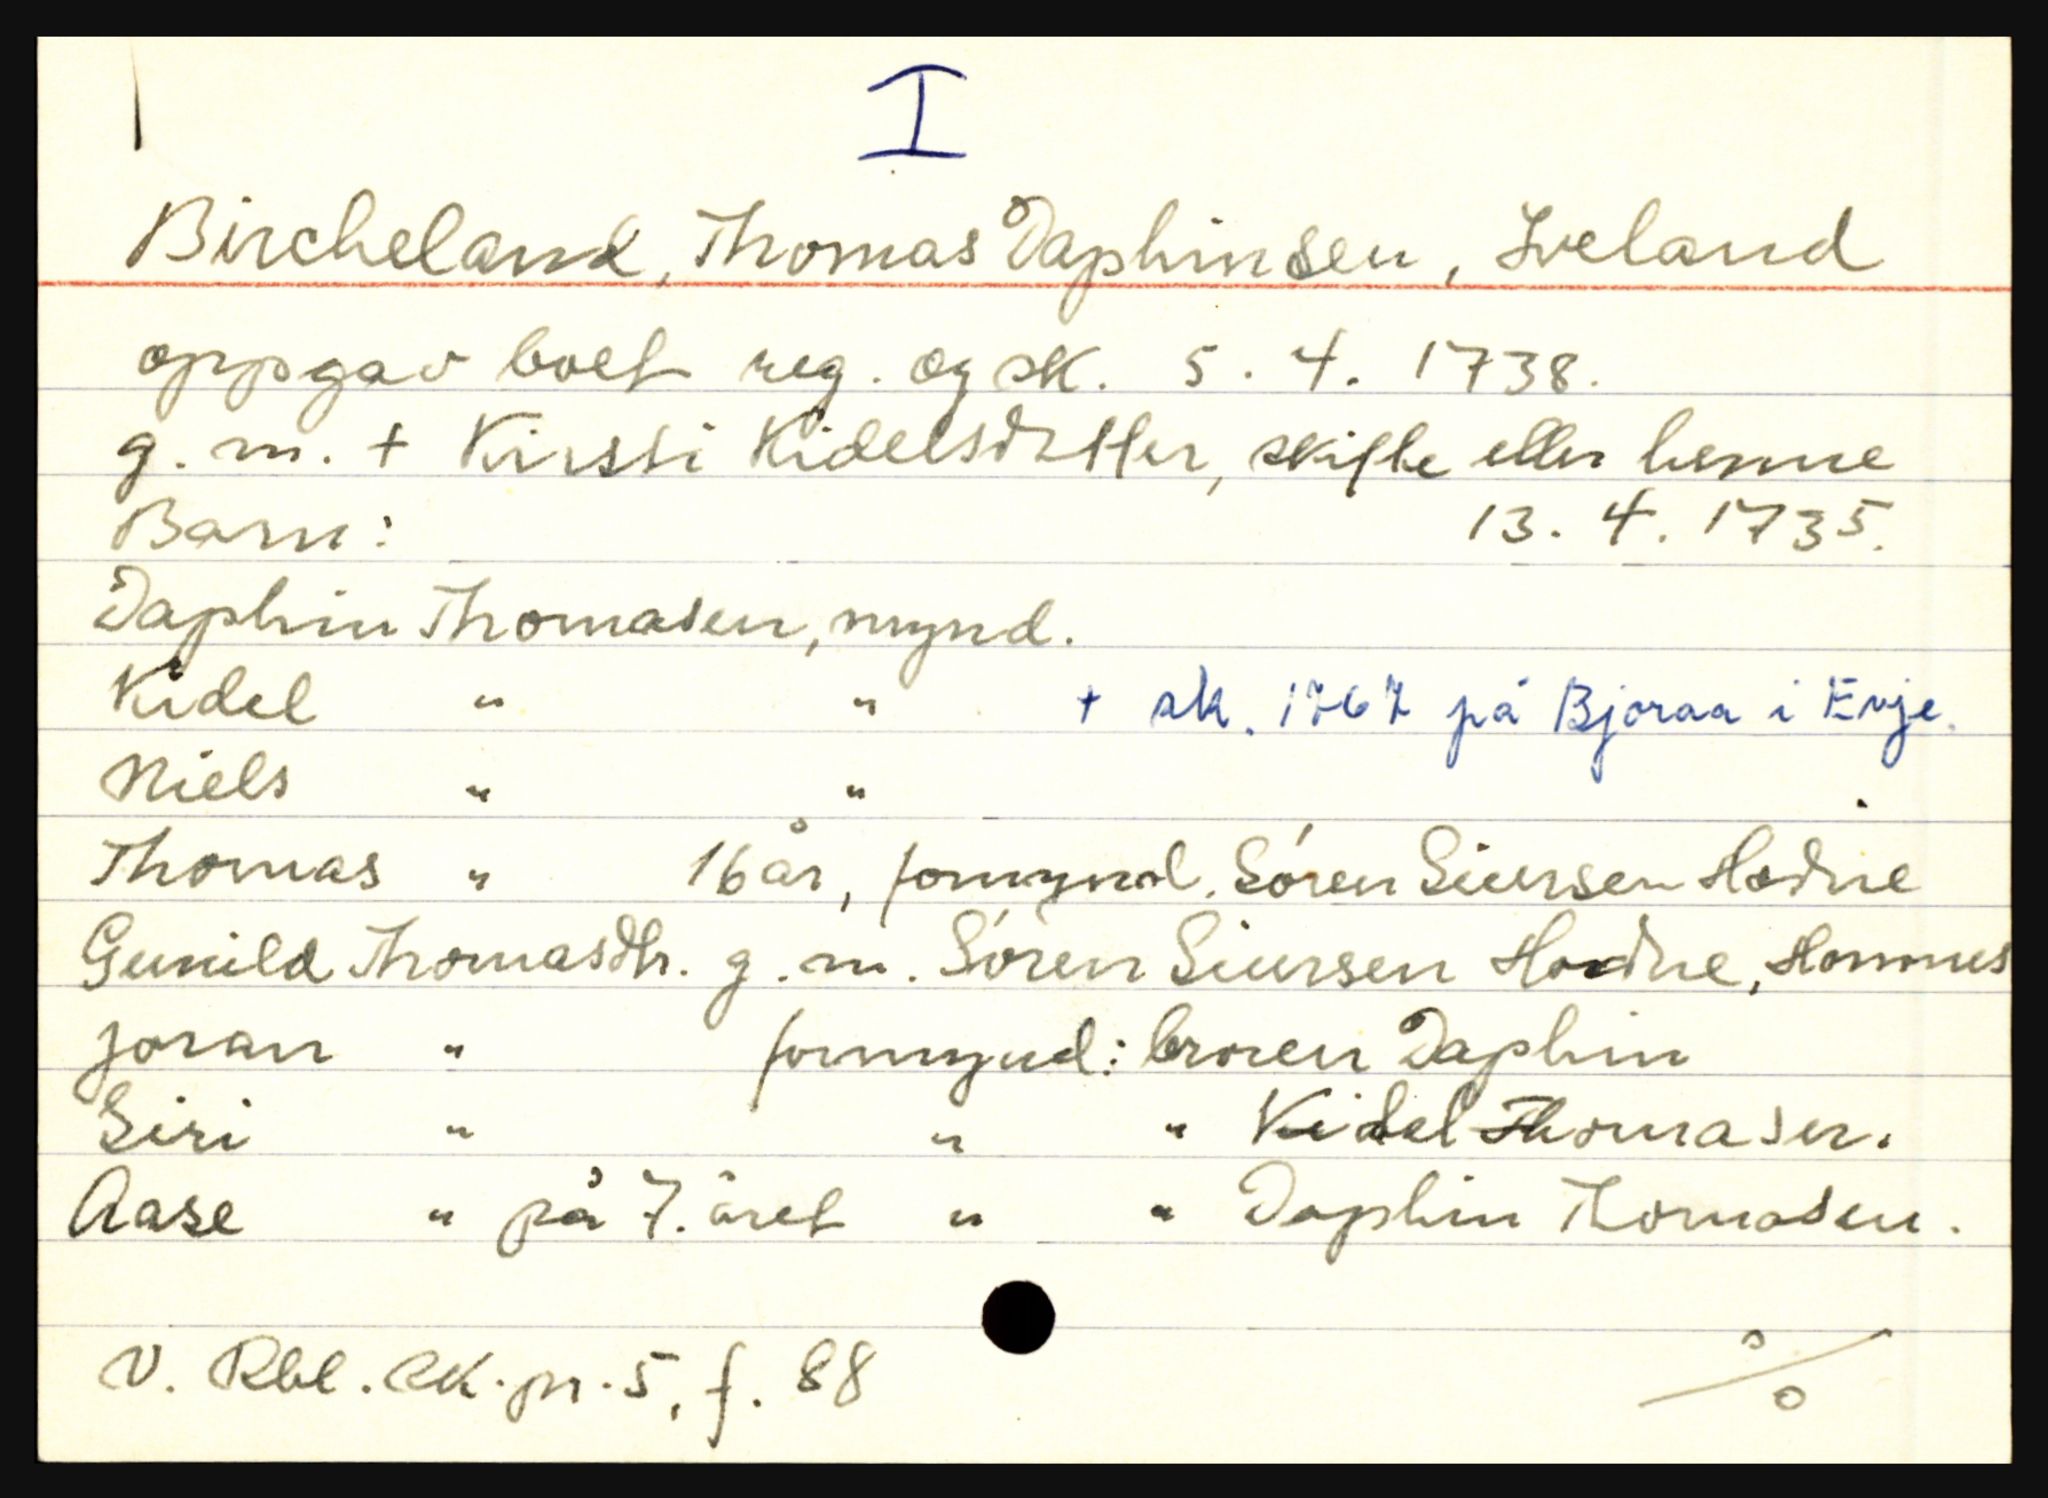 I
Bircheland, Thomas Daphinsen, Iveland
oppgav boet reg. og sk. 5. 4. 1738.
g. m. + Kirsti Kidelsdatter, skifte etter henne
Barn: 13. 4. 1735.
Daphin Thomasen, mynd.
Kidel " " + sk. 1767 på Bjoraa i Evje.
Niels " "
Thomas " 16 år, formynd. Sören Siursen Hodne
Gunild Thomasdtr. g. m. Sören Siursen Hodne, Hommes
Joran " formynd: broren Daphin
Siri " " " Kidel Thomasen.
Aase " på 7. året " " Daphin Thomasen.
V. Rbl. sk. pr. 5, f. 88
%